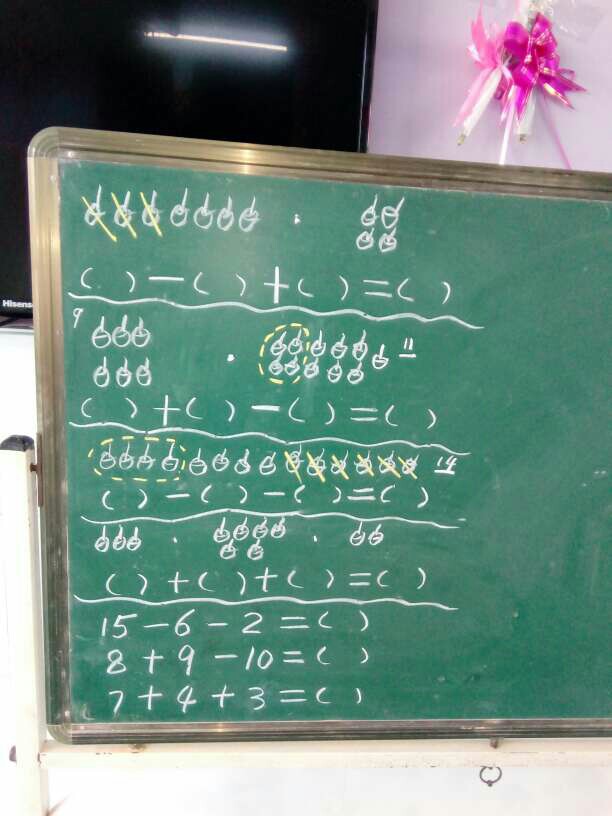 Hisense
( ) - ( ) + ( ) = ( )
9
11
( ) + ( ) - ( ) = ( )
14
( ) - ( ) - ( ) = ( )
( ) + ( ) + ( ) = ( )
15 - 6 - 2 = ( )
8 + 9 - 10 = ( )
7 + 4 + 3 = ( )